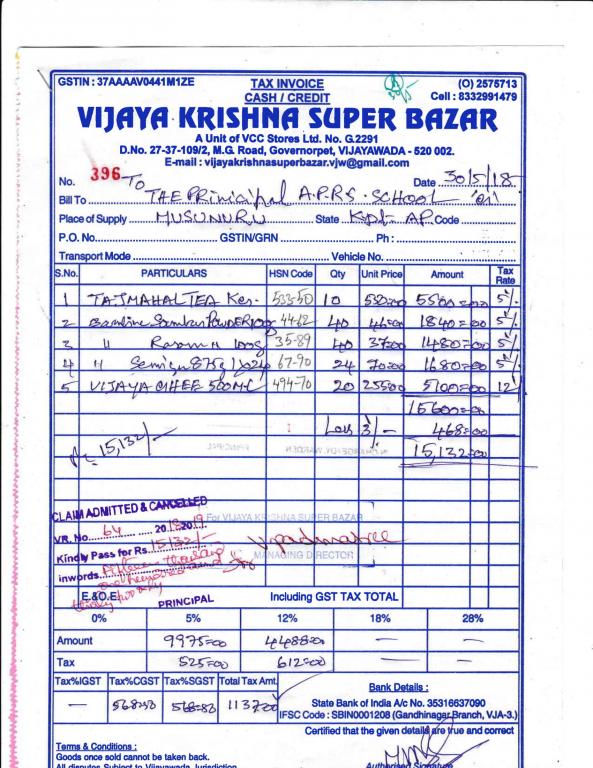 GSTIN : 37AAAAV0441M1ZE TAX INVOICE (O) 2575713
CASH / CREDIT Cell : 8332991479
VIJAYA KRISHNA SUPER BAZAR
A Unit of VCC Stores Ltd. No. G.2291
D.No. 27-37-109/2, M.G. Road, Governorpet, VIJAYAWADA - 520 002.
E-mail : vijayakrishnasuperbazar.vjw@gmail.com
No. 396 To Date 30/5/18
Bill To THE Prinicipal A.P.R.S. SCHOOL
Place of Supply MUSUNURU State AP Code
P.O. No. GSTIN/GRN Ph :
Transport Mode Vehicle No.
S.No. PARTICULARS HSN Code Qty Unit Price Amount Tax Rate
1 TAJMAHAL TEA 533-50 10 5500=00 5%
2 44-62 40 46=00 1840=00 5%
3 " 100g 35-89 40 37=00 1480=00 5%
4 " 67-90 24 70=00 1680=00 5%
5 VIJAYA GHEE 500ML 494-70 20 255=00 5100=00 12%
15600=00
Less 3% 468=00
15,132/- 15,132=00
CLAIM ADMITTED & CANCELLED
For VIJAYA KRISHNA SUPER BAZAR
VR. No. 64 2018-2019
Kindly Pass for Rs. 15132/-
MANAGING DIRECTOR
inwords fifteen thousand
one hundred and
thirty two only
E.&O.E. PRINCIPAL Including GST TAX TOTAL
0% 5% 12% 18% 28%
Amount 9975=00 4488=00 — —
Tax 525=00 612=00 — —
Tax%IGST Tax%CGST Tax%SGST Total Tax Amt. Bank Details :
— 568=50 1137=00 State Bank of India A/c No. 35316637090
IFSC Code : SBIN0001208 (Gandhinagar Branch, VJA-3.)
Certified that the given details are true and correct
Terms & Conditions :
Goods once sold cannot be taken back.
All disputes Subject to Vijayawada Jurisdiction
Authorised Signature